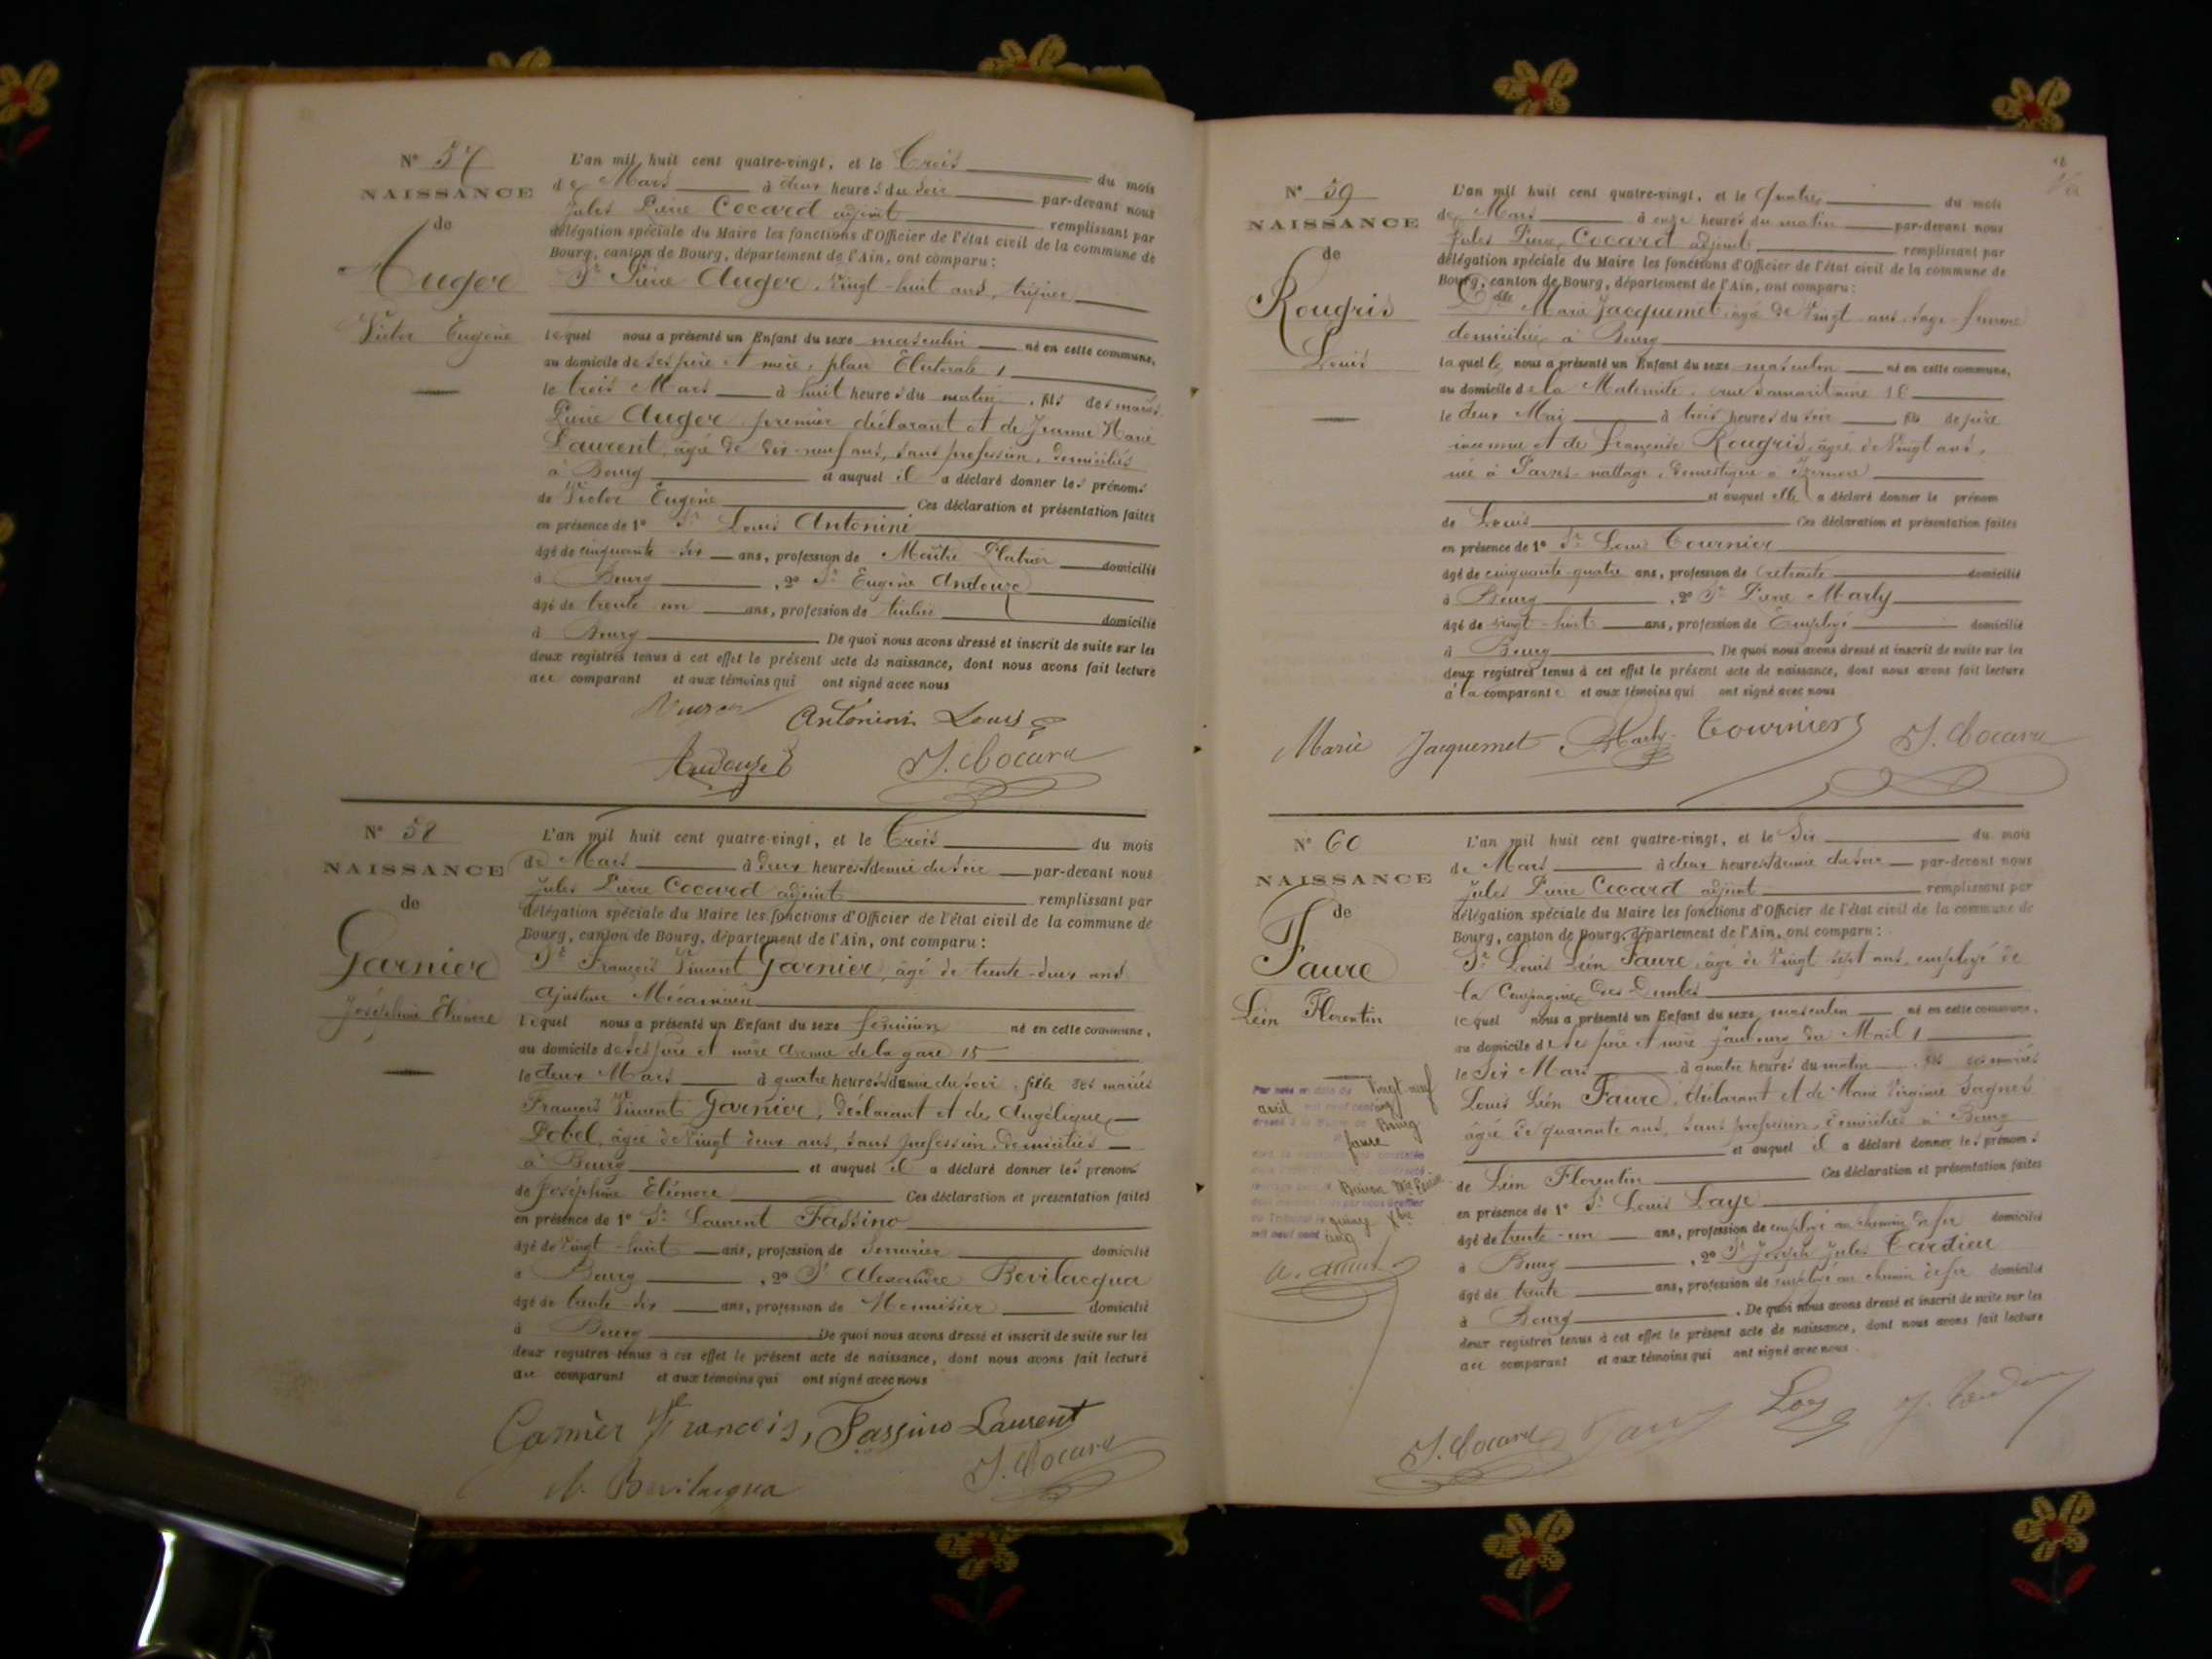 N° 57
NAISSANCE
de
Auger
Victor Eugène
L'an mil huit cent quatre-vingt, et le Trois du mois
de Mars à deux heures du soir par-devant nous
Jules Pierre Cocard adjoint remplissant par
délégation spéciale du Maire les fonctions d'Officier de l'état civil de la commune de
Bourg, canton de Bourg, département de l'Ain, ont comparu :
Sr Pierre Auger, vingt-huit ans,
lequel nous a présenté un Enfant du sexe masculin né en cette commune,
au domicile de ses père et mère, place Electorale 1
le trois Mars à huit heures du matin, fils des mariés
Pierre Auger premier déclarant et de Jeanne Marie
Laurent, âgée de dix-neuf ans, sans profession, domiciliés
à Bourg et auquel il a déclaré donner les prénoms
de Victor Eugène Ces déclaration et présentation faites
en présence de 1° Sr Louis Antonini
âgé de cinquante-six ans, profession de Maître Platrier domicilié
à Bourg, 2° Sr Eugène Andouze
âgé de trente un ans, profession de domicilié
à Bourg De quoi nous avons dressé et inscrit de suite sur les
deux registres tenus à cet effet le présent acte de naissance, dont nous avons fait lecture
au comparant et aux témoins qui ont signé avec nous
Antonini Louis
Andouze E J. Cocard
N° 58
NAISSANCE
de
Garnier
Joséphine Eléonore
L'an mil huit cent quatre-vingt, et le Trois du mois
de Mars à deux heures et demie du soir par-devant nous
Jules Pierre Cocard adjoint remplissant par
délégation spéciale du Maire les fonctions d'Officier de l'état civil de la commune de
Bourg, canton de Bourg, département de l'Ain, ont comparu :
Sr François Vincent Garnier, âgé de trente-deux ans
ajusteur Mécanicien
lequel nous a présenté un Enfant du sexe féminin né en cette commune,
au domicile de ses père et mère avenue de la gare 15
le deux Mars à quatre heures et demie du soir, fille des mariés
François Vincent Garnier, déclarant et de Angélique
Pobel, âgée de vingt deux ans, sans profession, domiciliés
à Bourg et auquel il a déclaré donner les prénoms
de Joséphine Eléonore Ces déclaration et présentation faites
en présence de 1° Sr Laurent Fassino
âgé de vingt-huit ans, profession de Serrurier domicilié
à Bourg, 2° Sr Alexandre Bevilacqua
âgé de trente-six ans, profession de Menuisier domicilié
à Bourg De quoi nous avons dressé et inscrit de suite sur les
deux registres tenus à cet effet le présent acte de naissance, dont nous avons fait lecture
au comparant et aux témoins qui ont signé avec nous
Garnier François, Fassino Laurent
Bevilacqua J. Cocard
N° 59
NAISSANCE
de
Rougris
Louis
L'an mil huit cent quatre-vingt, et le Quatre du mois
de Mars à onze heures du matin par-devant nous
Jules Pierre Cocard adjoint remplissant par
délégation spéciale du Maire les fonctions d'Officier de l'état civil de la commune de
Bourg, canton de Bourg, département de l'Ain, ont comparu :
Dlle Marie Jacquemet, âgée de vingt ans, sage-femme
domiciliée à Bourg
laquelle nous a présenté un Enfant du sexe masculin né en cette commune,
au domicile de la Maternité, rue Samaritaine 18
le deux à trois heures du soir fils de père
inconnu et de Françoise Rougris, âgée de vingt ans,
née à domestique à Izernore
et auquel elle a déclaré donner le prénom
de Louis Ces déclaration et présentation faites
en présence de 1° Sr Louis Tournier
âgé de cinquante-quatre ans, profession de retraité domicilié
à Bourg, 2° Sr Pierre Marly
âgé de vingt-huit ans, profession de Employé domicilié
à Bourg De quoi nous avons dressé et inscrit de suite sur les
deux registres tenus à cet effet le présent acte de naissance, dont nous avons fait lecture
à la comparante et aux témoins qui ont signé avec nous
Marie Jacquemet Marly Tournier J. Cocard
N° 60
NAISSANCE
de
Faure
Léon Florentin
vingt-neuf
avril
Bourg
faure
L'an mil huit cent quatre-vingt, et le Six du mois
de Mars à deux heures et demie du soir par-devant nous
Jules Pierre Cocard adjoint remplissant par
délégation spéciale du Maire les fonctions d'Officier de l'état civil de la commune de
Bourg, canton de Bourg, département de l'Ain, ont comparu :
Sr Louis Léon Faure, âgé de vingt sept ans, employé de
la Compagnie des Dombes
lequel nous a présenté un Enfant du sexe masculin né en cette commune,
au domicile de ses père et mère faubourg du Mail 1
le Six Mars à quatre heures du matin, fils des mariés
Louis Léon Faure, déclarant et de Marie Virginie
âgée de quarante ans, sans profession, domiciliés à Bourg
et auquel il a déclaré donner les prénoms
de Léon Florentin Ces déclaration et présentation faites
en présence de 1° Sr Louis Laye
âgé de trente-un ans, profession de employé au chemin de fer domicilié
à Bourg, 2° Sr Joseph Jules Tardieu
âgé de trente ans, profession de employé au chemin de fer domicilié
à Bourg. De quoi nous avons dressé et inscrit de suite sur les
deux registres tenus à cet effet le présent acte de naissance, dont nous avons fait lecture
au comparant et aux témoins qui ont signé avec nous
J. Cocard